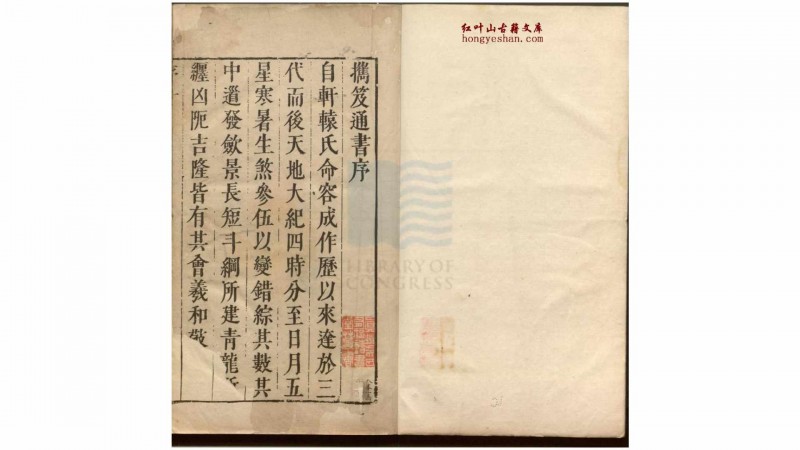 红叶山古籍文库
hongyeshan.com
攜笈通書序
自軒轅氏命容成作歷以來逹於三
代而後天地大紀四時分至日月五
星寒暑生煞參伍以變錯綜其數其
中道發歛景長短斗綱所建青龍所
纒凶阨吉隆皆有其會羲和敬
LIBRARY OF
CONGRESS